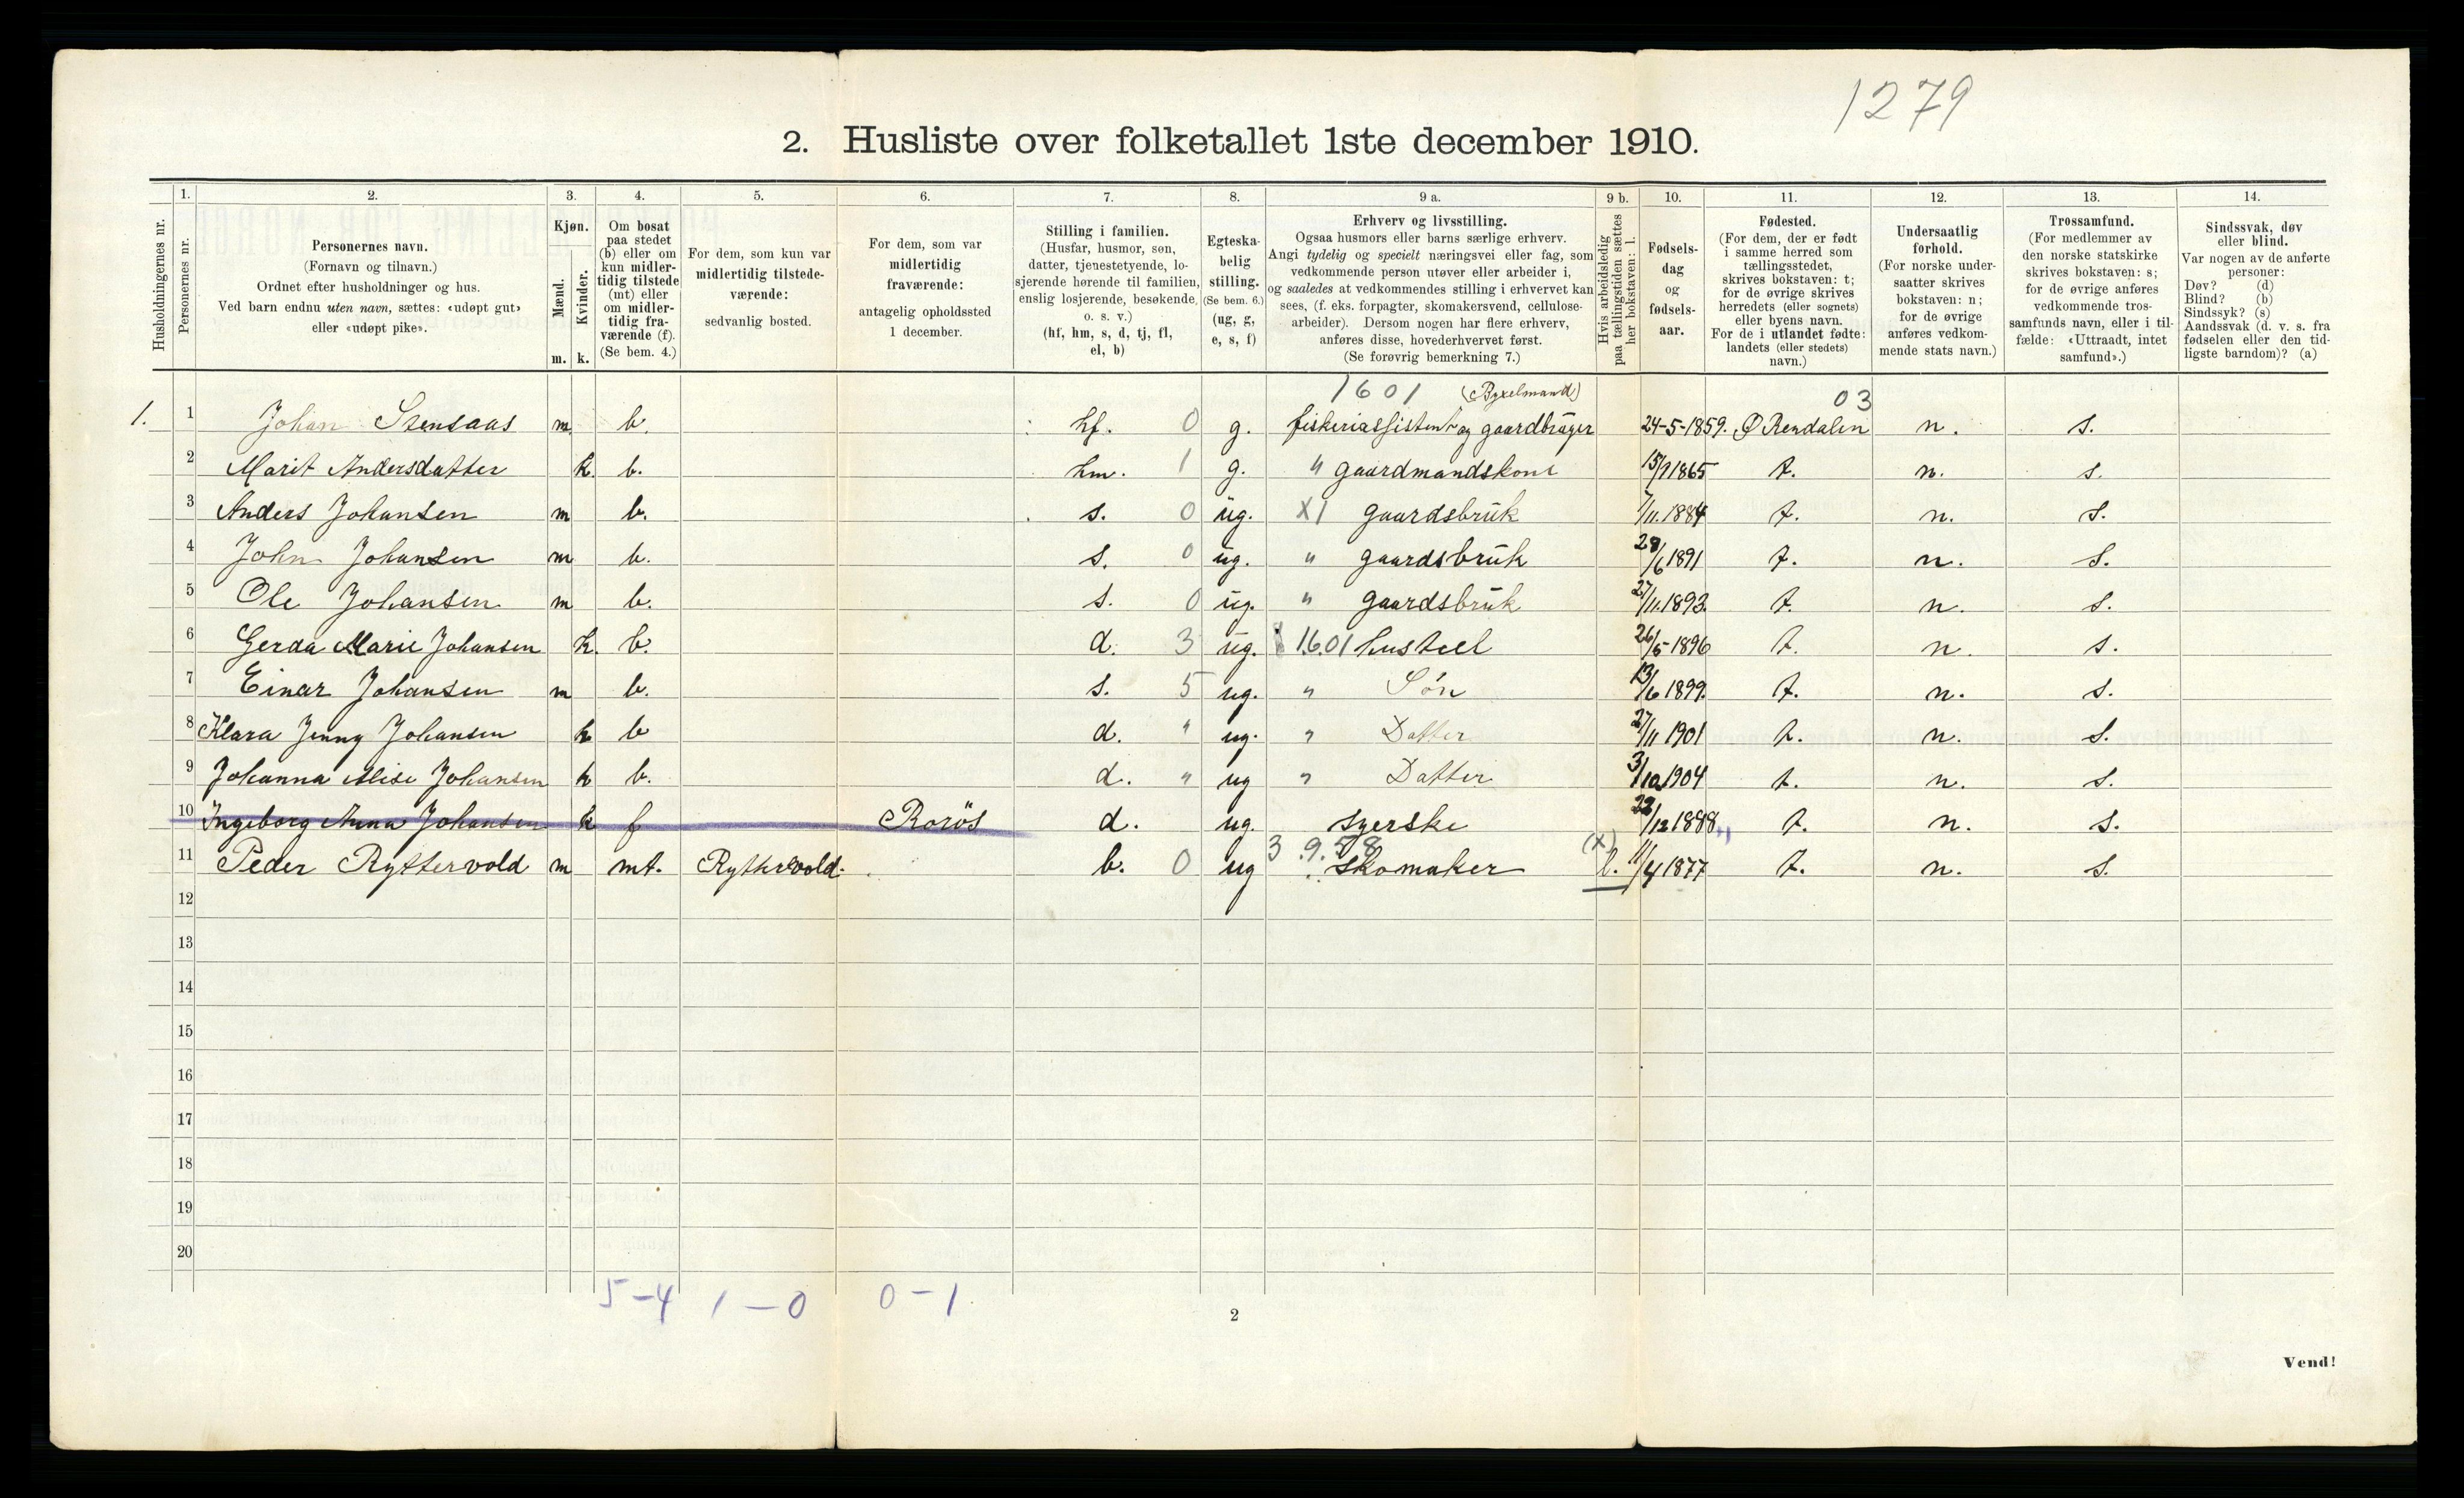 1279
2. Husliste over folketallet 1ste december 1910.
Husholdningernes nr.
1.
Personernes nr.
2.
Personernes navn.
(Fornavn og tilnavn.)
Ordnet efter husholdninger og hus.
Ved barn endnu uten navn, sættes: «udøpt gut»
eller «udøpt pike».
3.
Kjøn.
Mænd.
Kvinder.
m. k.
4.
Om bosat
paa stedet
(b) eller om
kun midler-
tidig tilstede
(mt) eller
om midler-
tidig fra-
værende (f).
(Se bem. 4.)
5.
For dem, som kun var
midlertidig tilstede-
værende:
sedvanlig bosted.
6.
For dem, som var
midlertidig
fraværende:
antagelig opholdssted
1 december.
7.
Stilling i familien.
(Husfar, husmor, søn,
datter, tjenestetyende, lo-
sjerende hørende til familien,
enslig losjerende, besøkende,
o. s. v.)
(hf, hm, s, d, tj, fl,
el, b)
8.
Egteska-
belig
stilling.
(Se bem. 6.)
(ug, g,
e, s, f)
9 a.
Erhverv og livsstilling.
Ogsaa husmors eller barns særlige erhverv.
Angi tydelig og specielt næringsvei eller fag, som
vedkommende person utøver eller arbeider i,
og saaledes at vedkommendes stilling i erhvervet kan
sees, (f. eks. forpagter, skomakersvend, cellulose-
arbeider). Dersom nogen har flere erhverv,
anføres disse, hovederhvervet først.
(Se forøvrig bemerkning 7.)
9 b.
Hvis arbeidsledig
paa tællingstiden sættes
her bokstaven: l.
10.
Fødsels-
dag
og
fødsels-
aar.
11.
Fødested.
(For dem, der er født
i samme herred som
tællingsstedet,
skrives bokstaven: t;
for de øvrige skrives
herredets (eller sognets)
eller byens navn.
For de i utlandet fødte:
landets (eller stedets)
navn.)
12.
Undersaatlig
forhold.
(For norske under-
saatter skrives
bokstaven: n;
for de øvrige
anføres vedkom-
mende stats navn.)
13.
Trossamfund.
(For medlemmer av
den norske statskirke
skrives bokstaven: s;
for de øvrige anføres
vedkommende tros-
samfunds navn, eller i til-
fælde: «Uttraadt, intet
samfund».)
14.
Sindssvak, døv
eller blind.
Var nogen av de anførte
personer:
Døv? (d)
Blind? (b)
Sindssyk? (s)
Aandssvak (d. v. s. fra
fødselen eller den tid-
ligste barndom)? (a)
1601 03
1. 1 Johan Stensaas m. b. hf. 0 g. fiskeriassistent og gaardbruger 24-5-1859. Ø Rendalen n. s.
2 Marit Andersdatter k. b. hm. 1 g. " gaardmandskone 15/9 1865 t. n. s.
3 Anders Johansen m b. s. 0 ug. X1 gaardsbruk 7/11.1884 t. n. s.
4 John Johansen m b. s. 0 ug. " gaardsbruk 28/6 1891 t. n. s.
5 Ole Johansen m b. s. 0 ug. " gaardsbruk 27/11.1893. t. n. s.
6 Gerda Marie Johansen k. b. d. 3 ug. 16.01 husteel 26/5-1896 t. n. s.
7 Einar Johansen m b. s. 5 ug. " Søn 13/6 1899. t. n. s.
8 Klara Jenny Johansen k b d. " ug. " Datter 27/11 1901 t. n. s.
9 Johanna Alise Johansen k b. d. " ug " Datter 3/10 1904 t. n. s.
10 Ingeborg Anna Johansen k f Rorös d. ug. syerske 22/12 1888 t. n. s.
3.9.58 (X)
11 Peder Ryttervold m mt. Ryttervold b. 0 ug skomaker l. 11/4 1877 t. n. s.
12
13
14
15
16
17
18
19
20
5-4 1-0 0-1
2
Vend!